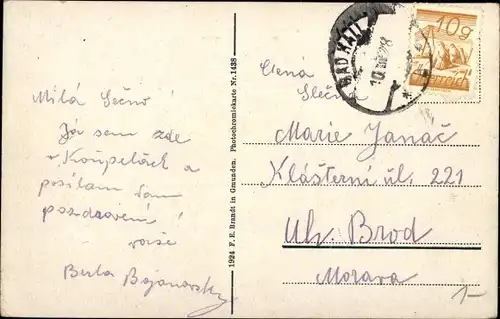 Milá Sečno!
Já sem zde
v Koupelách a
posílam Vam
pozdravem!
vaše
Berta Bojanovsky
1924 F. E. Brandt in Gmunden. Photochromiekarte Nr. 1438
BAD HALL
10g
Ctená
Slečna
Marie Janáč
Klášterní ul. 221
Uh. Brod
Morava
1-